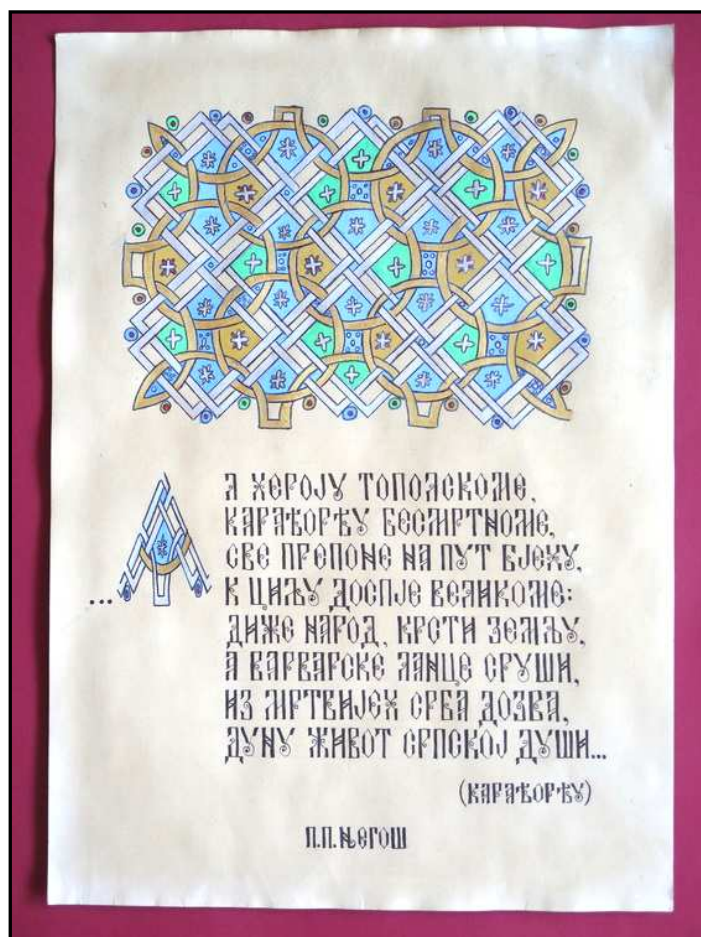 ...АЛ ХЕРОЈУ ТОПОЛСКОМЕ,
КАРАЂОРЂУ БЕСМРТНОМЕ,
СВЕ ПРЕПОНЕ НА ПУТ БЈЕХУ,
К ЦИЉУ ДОСПЈЕ ВЕЛИКОМЕ:
ДИЖЕ НАРОД, КРСТИ ЗЕМЉУ,
А ВАРВАРСКЕ ЛАНЦЕ СРУШИ,
ИЗ МРТВИЈЕХ СРБА ДОЗВА,
ДУНУ ЖИВОТ СРПСКОЈ ДУШИ...
(КАРАЂОРЂУ)
П.П.ЊЕГОШ